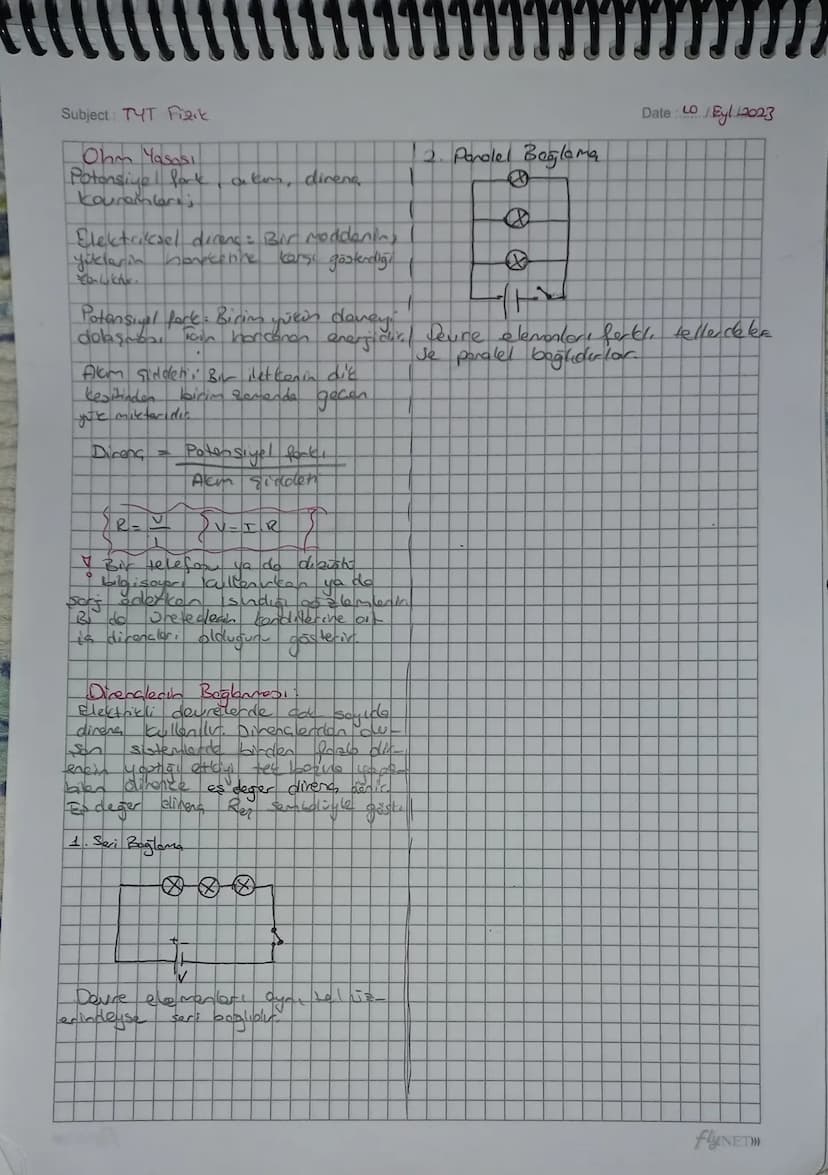 Subject: TYT Fizik
Date: 10 / Eyl / 2023
Ohm Yasası
Potansiyel fark, akım, direnç
kavramları;
Elektriksel direnç = Bir maddenin,
yüklerin hareketine karşı gösterdiği
zorluktur.
Potansiyel fark: Birim yükün devreyi
dolaşması için harcanan enerjidir.
Akım şiddeti: Bir iletkenin dik
kesitinden birim zamanda geçen
yük miktarıdır.
Direnç = Potansiyel farkı
Akım şiddeti
R = V
I
V = I.R
! Bir telefonu ya da dizüstü
bilgisayarı kullanırken ya da
şarj ederken ısındığı gözlemlenir.
Bu da üreteçlerin kendilerine ait
iç dirençleri olduğunu gösterir.
Dirençlerin Bağlanması:
Elektrikli devrelerde çok sayıda
direnç kullanılır. Dirençlerden olu-
şan sistemlerde birden fazla dir-
encin yaptığı etkiyi tek başına yapa-
bilen dirence eşdeğer direnç denir.
Eş değer direnç Reş sembolüyle göst.
1. Seri Bağlama
+ -
V
Devre elemanları aynı tel üz-
erindeyse seri bağlıdır.
2. Paralel Bağlama
Devre elemanları farklı tellerdeke
se paralel bağlıdırlar
flyNET